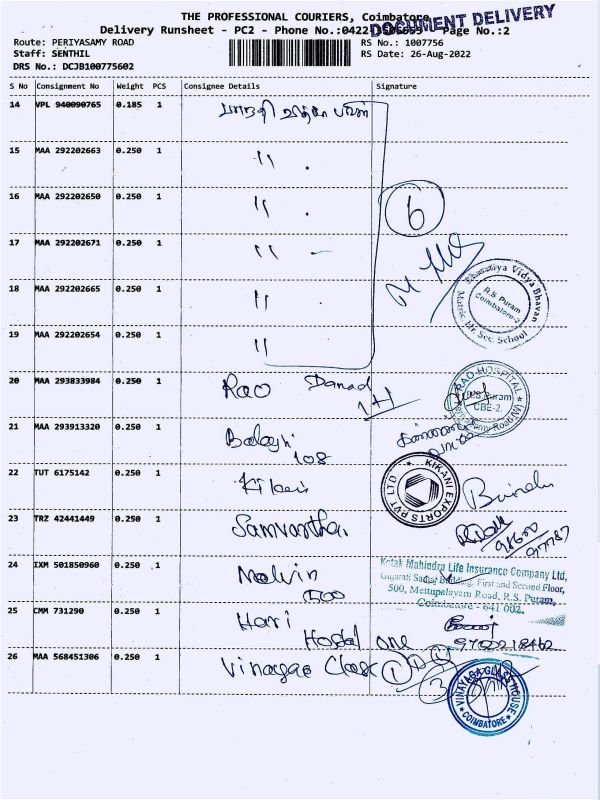 THE PROFESSIONAL COURIERS, Coimbatore
DOCUMENT DELIVERY
Delivery Runsheet - PC2 - Phone No.:0422 Page No.:2
Route: PERIYASAMY ROAD RS No.: 1007756
Staff: SENTHIL RS Date: 26-Aug-2022
DRS No.: DCJB100775602
S No Consignment No Weight PCS Consignee Details Signature
14 VPL 940090765 0.185 1
15 MAA 292202663 0.250 1 "
16 MAA 292202650 0.250 1 " 6
17 MAA 292202671 0.250 1 "
18 MAA 292202665 0.250 1 "
Bharatiya Vidya Bhavan
R.S. Puram
Coimbatore-2
Matric. Hr. Sec. School
19 MAA 292202654 0.250 1 "
20 MAA 293833984 0.250 1 Rao
RAO HOSPITAL
R.S. Puram
CBE-2.
21 MAA 293913320 0.250 1 Balaji
108
22 TUT 6175142 0.250 1
KIKANI EXPORTS PVT LTD
23 TRZ 42441449 0.250 1
24 IXM 501850960 0.250 1 Melvin
Kotak Mahindra Life Insurance Company Ltd,
Gujarati Samaj Building, First and Second Floor,
500, Mettupalayam Road, R.S. Puram,
Coimbatore - 641 002.
25 CMM 731290 0.250 1 Hari
Hostel one
26 MAA 568451306 0.250 1 Vinayaga
3
VINAYAGA GLASS HOUSE
COIMBATORE